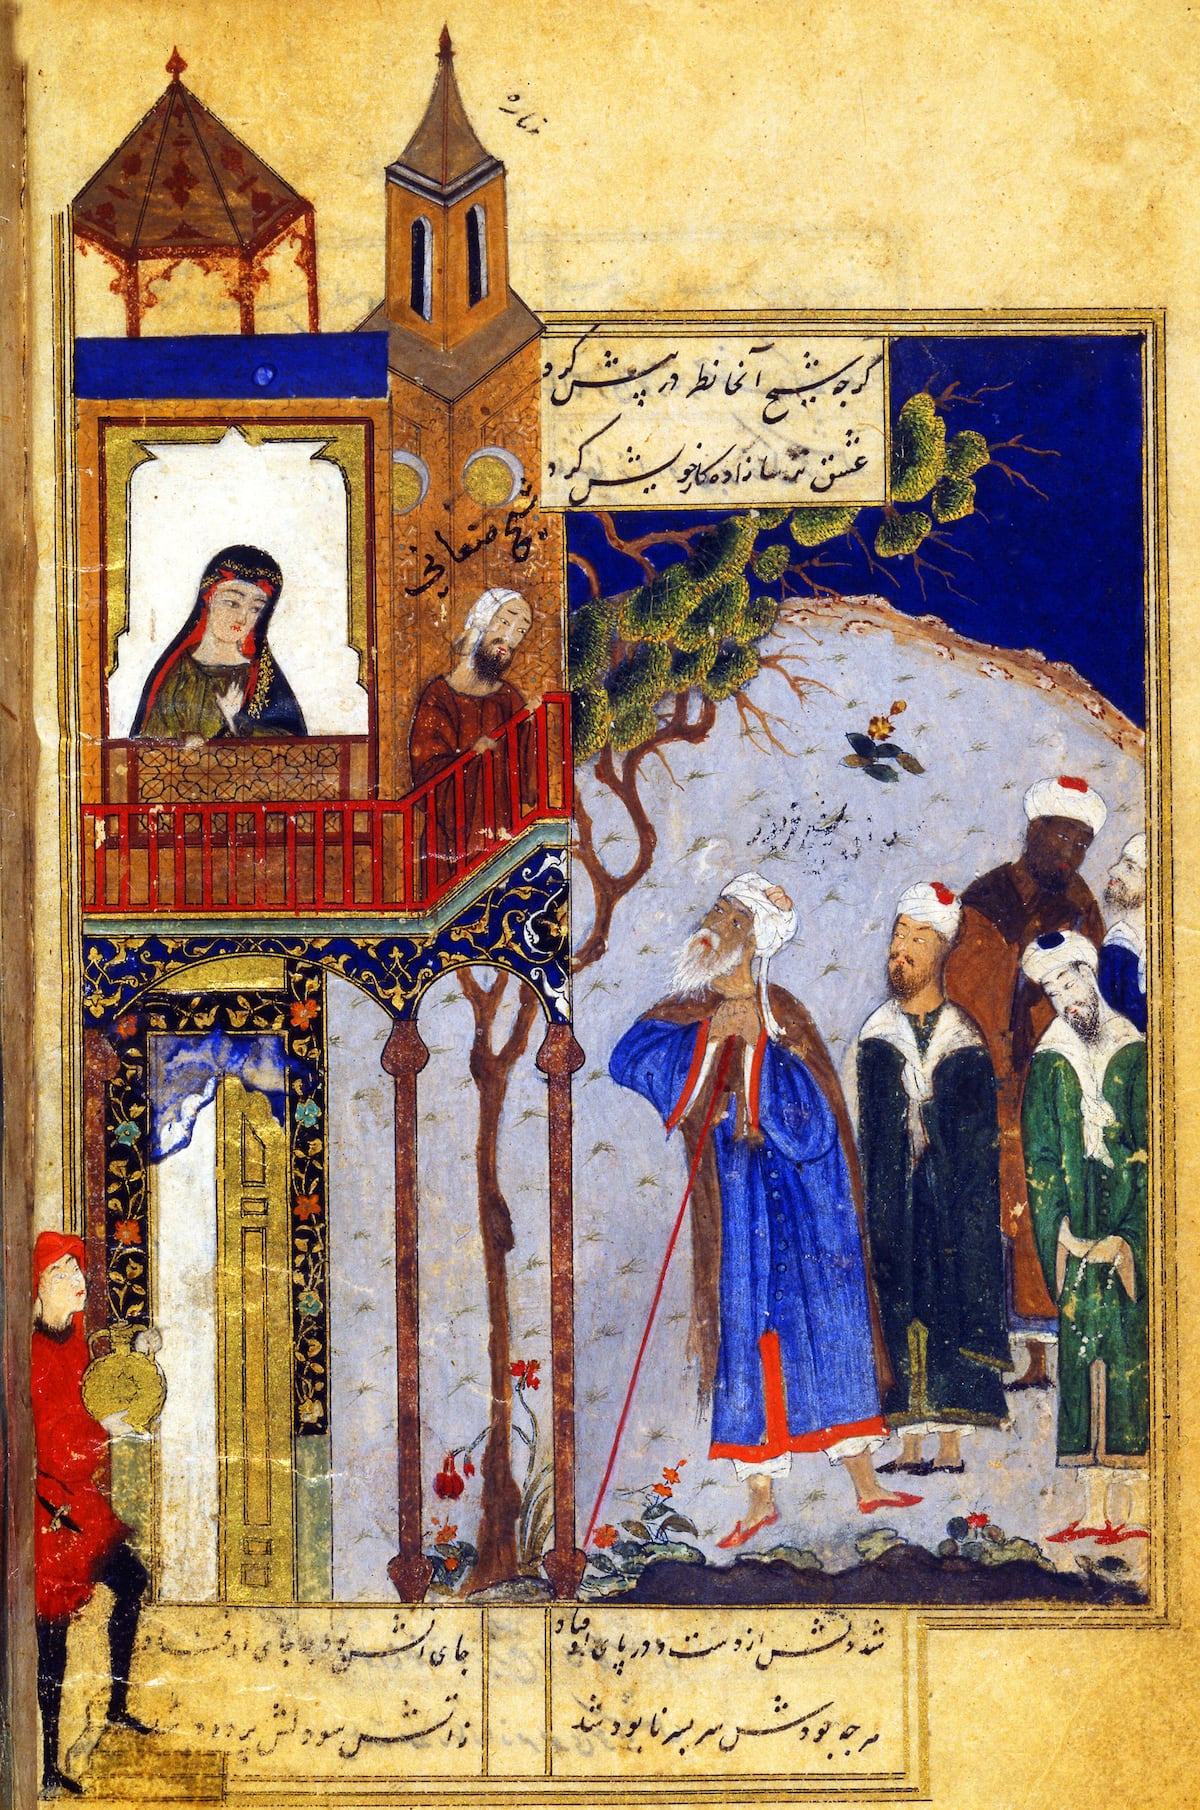 مناره
گرچه شیخ آنجا نظر در پیش کرد
عشق ترسا زاده کار خویش کرد
شیخ صنعانی
شد دلش از دست و در پای اوفتاد
جای آتش بود بر جای اوفتاد
هرچه بودش سر بسر نابود شد
زاتش سودا دلش پر دود شد